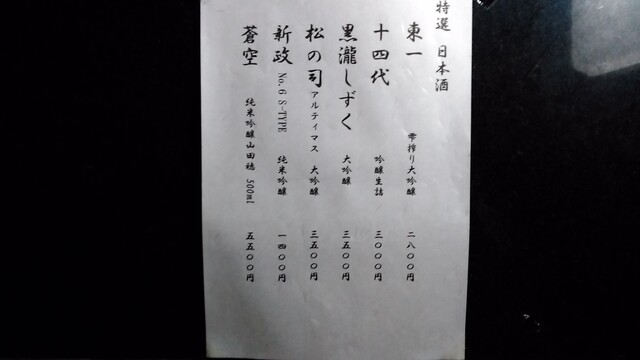 特選 日本酒
東一 雫搾り大吟醸 二八〇〇円
十四代 吟醸生詰 三〇〇〇円
黒瀧しずく 大吟醸 三五〇〇円
松の司 アルティマス 大吟醸 三五〇〇円
新政 No.6 S-TYPE 純米吟醸 一四〇〇円
蒼空 純米吟醸山田穂 500ml 五五〇〇円